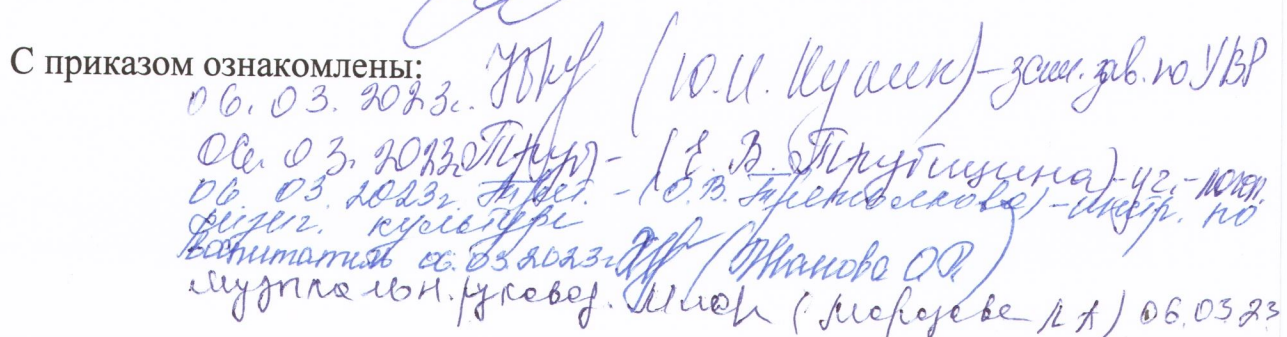 С приказом ознакомлены:
06.03.2023г. (Ю.И. Кулик) - зам. зав. по УВР
06.03.2023г. Труб - (Е.В. Трубицина) - уч. - логоп.
06.03.2023г. Трет. - (О.В. Третьякова) - инстр. по
физич. культуре
Воспитатель 06.03.2023г. (Жанова О.Р.)
Музыкальн. руковод. Мор (Морозова Л А) 06.03.23